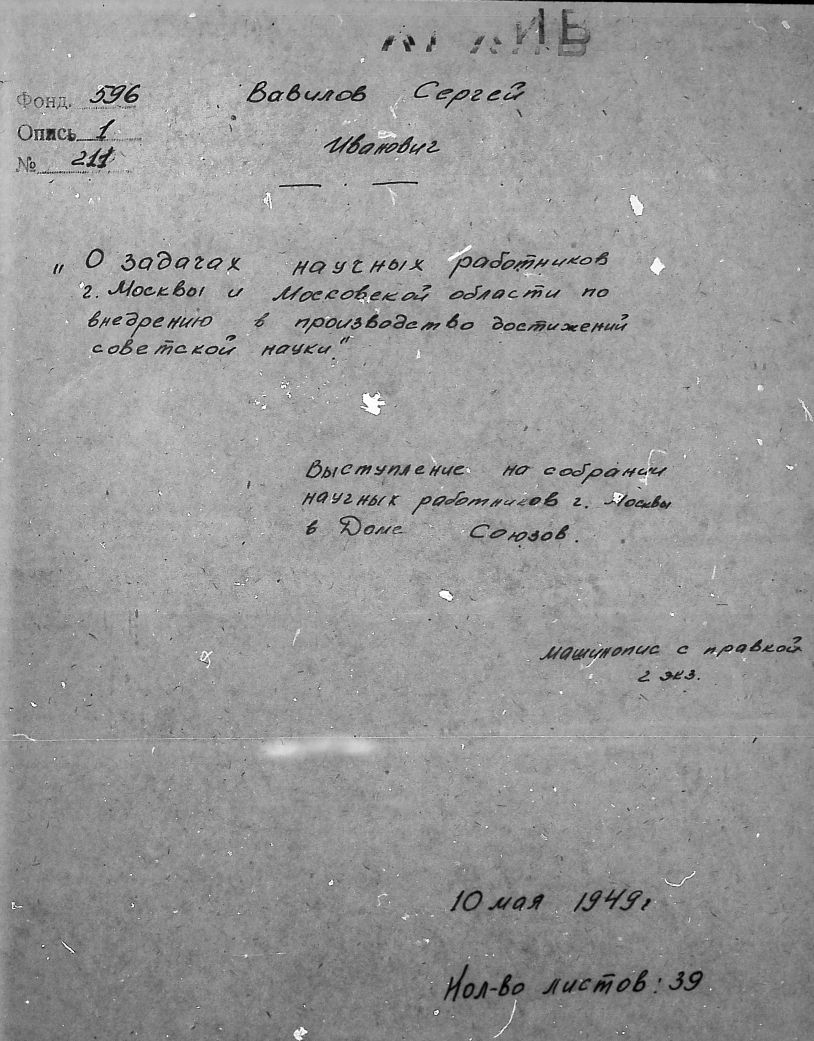 АРХИВ
Фонд. 596
Опись 1
№ 211
Вавилов Сергей
Иванович
„О задачах научных работников
г. Москвы и Московской области по
внедрению в производство достижений
советской науки"
Выступление на собрании
научных работников г. Москвы
в Доме Союзов.
машинопис с правкой
2 экз.
10 мая 1949г
Кол-во листов: 39